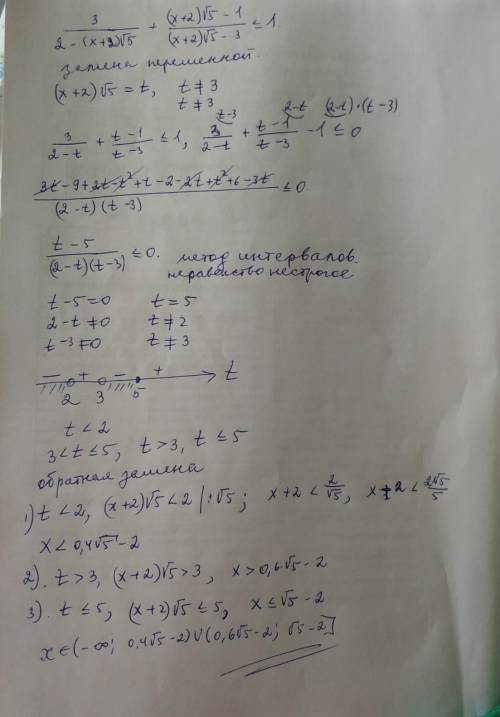 3/(2-(x+2)√5) + ((x+2)√5-1)/((x+2)√5-3) ≤ 1
замена переменной.
(x+2)√5 = t, t ≠ 3
t ≠ 3
3/(2-t) + (t-1)/(t-3) ≤ 1, 3/(2-t) + (t-1)/(t-3) - 1 ≤ 0 t-3 2-t (2-t)·(t-3)
(3t-9+2t-t²+t-2-2t+t²+6-3t)/((2-t)(t-3)) ≤ 0.
(t-5)/((2-t)(t-3)) ≤ 0. метод интервалов.
неравенство нестрогое
t-5=0 t=5
2-t≠0 t≠2
t-3≠0 t≠3
- + - + t
2 3 5
t<2
3<t≤5, t>3, t≤5
обратная замена
1) t<2, (x+2)√5<2 |:√5; x+2<2/√5, x+2<2√5/5
x<0,4√5-2
2). t>3, (x+2)√5>3, x>0,6√5-2
3). t≤5, (x+2)√5≤5, x≤√5-2
x∈(-∞; 0,4√5-2)∪(0,6√5-2; √5-2]